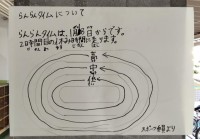 らんらんタイムについて
らんらんタイムは、1月 日からです。
20分間目の休み20分間に走ります。
高
中
低
スポーツ委員より